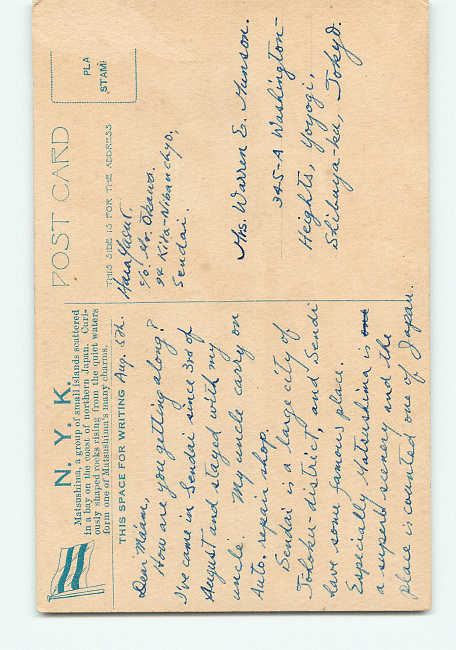 N. Y. K.
Matsushima, a group of small islands scattered
in a bay on the coast of northern Japan. Curi-
ously shaped rocks rising from the quiet waters
form one of Matsushima's many charms.
THIS SPACE FOR WRITING Aug. 5th.
Dear Ma'am,
How are you getting along?
I've came in Sendai since 3rd of
August and stayed with my
uncle. My uncle carry on
Auto. repair shop.
Sendai is a large city of
Tohoku-district, and Sendi
have some famous place.
Especially Matsushima is
a superb scenery and the
place is counted one of Japan.
POST CARD
THIS SIDE IS FOR THE ADDRESS
PLA
STAM
c/o Mr. Okawa.
94 Kita-Nibancho,
Sendai.
Mrs. Warren E. Munson.
345-A Washington-
Heights, Yoyogi,
Shibuya-ku, Tokyo.